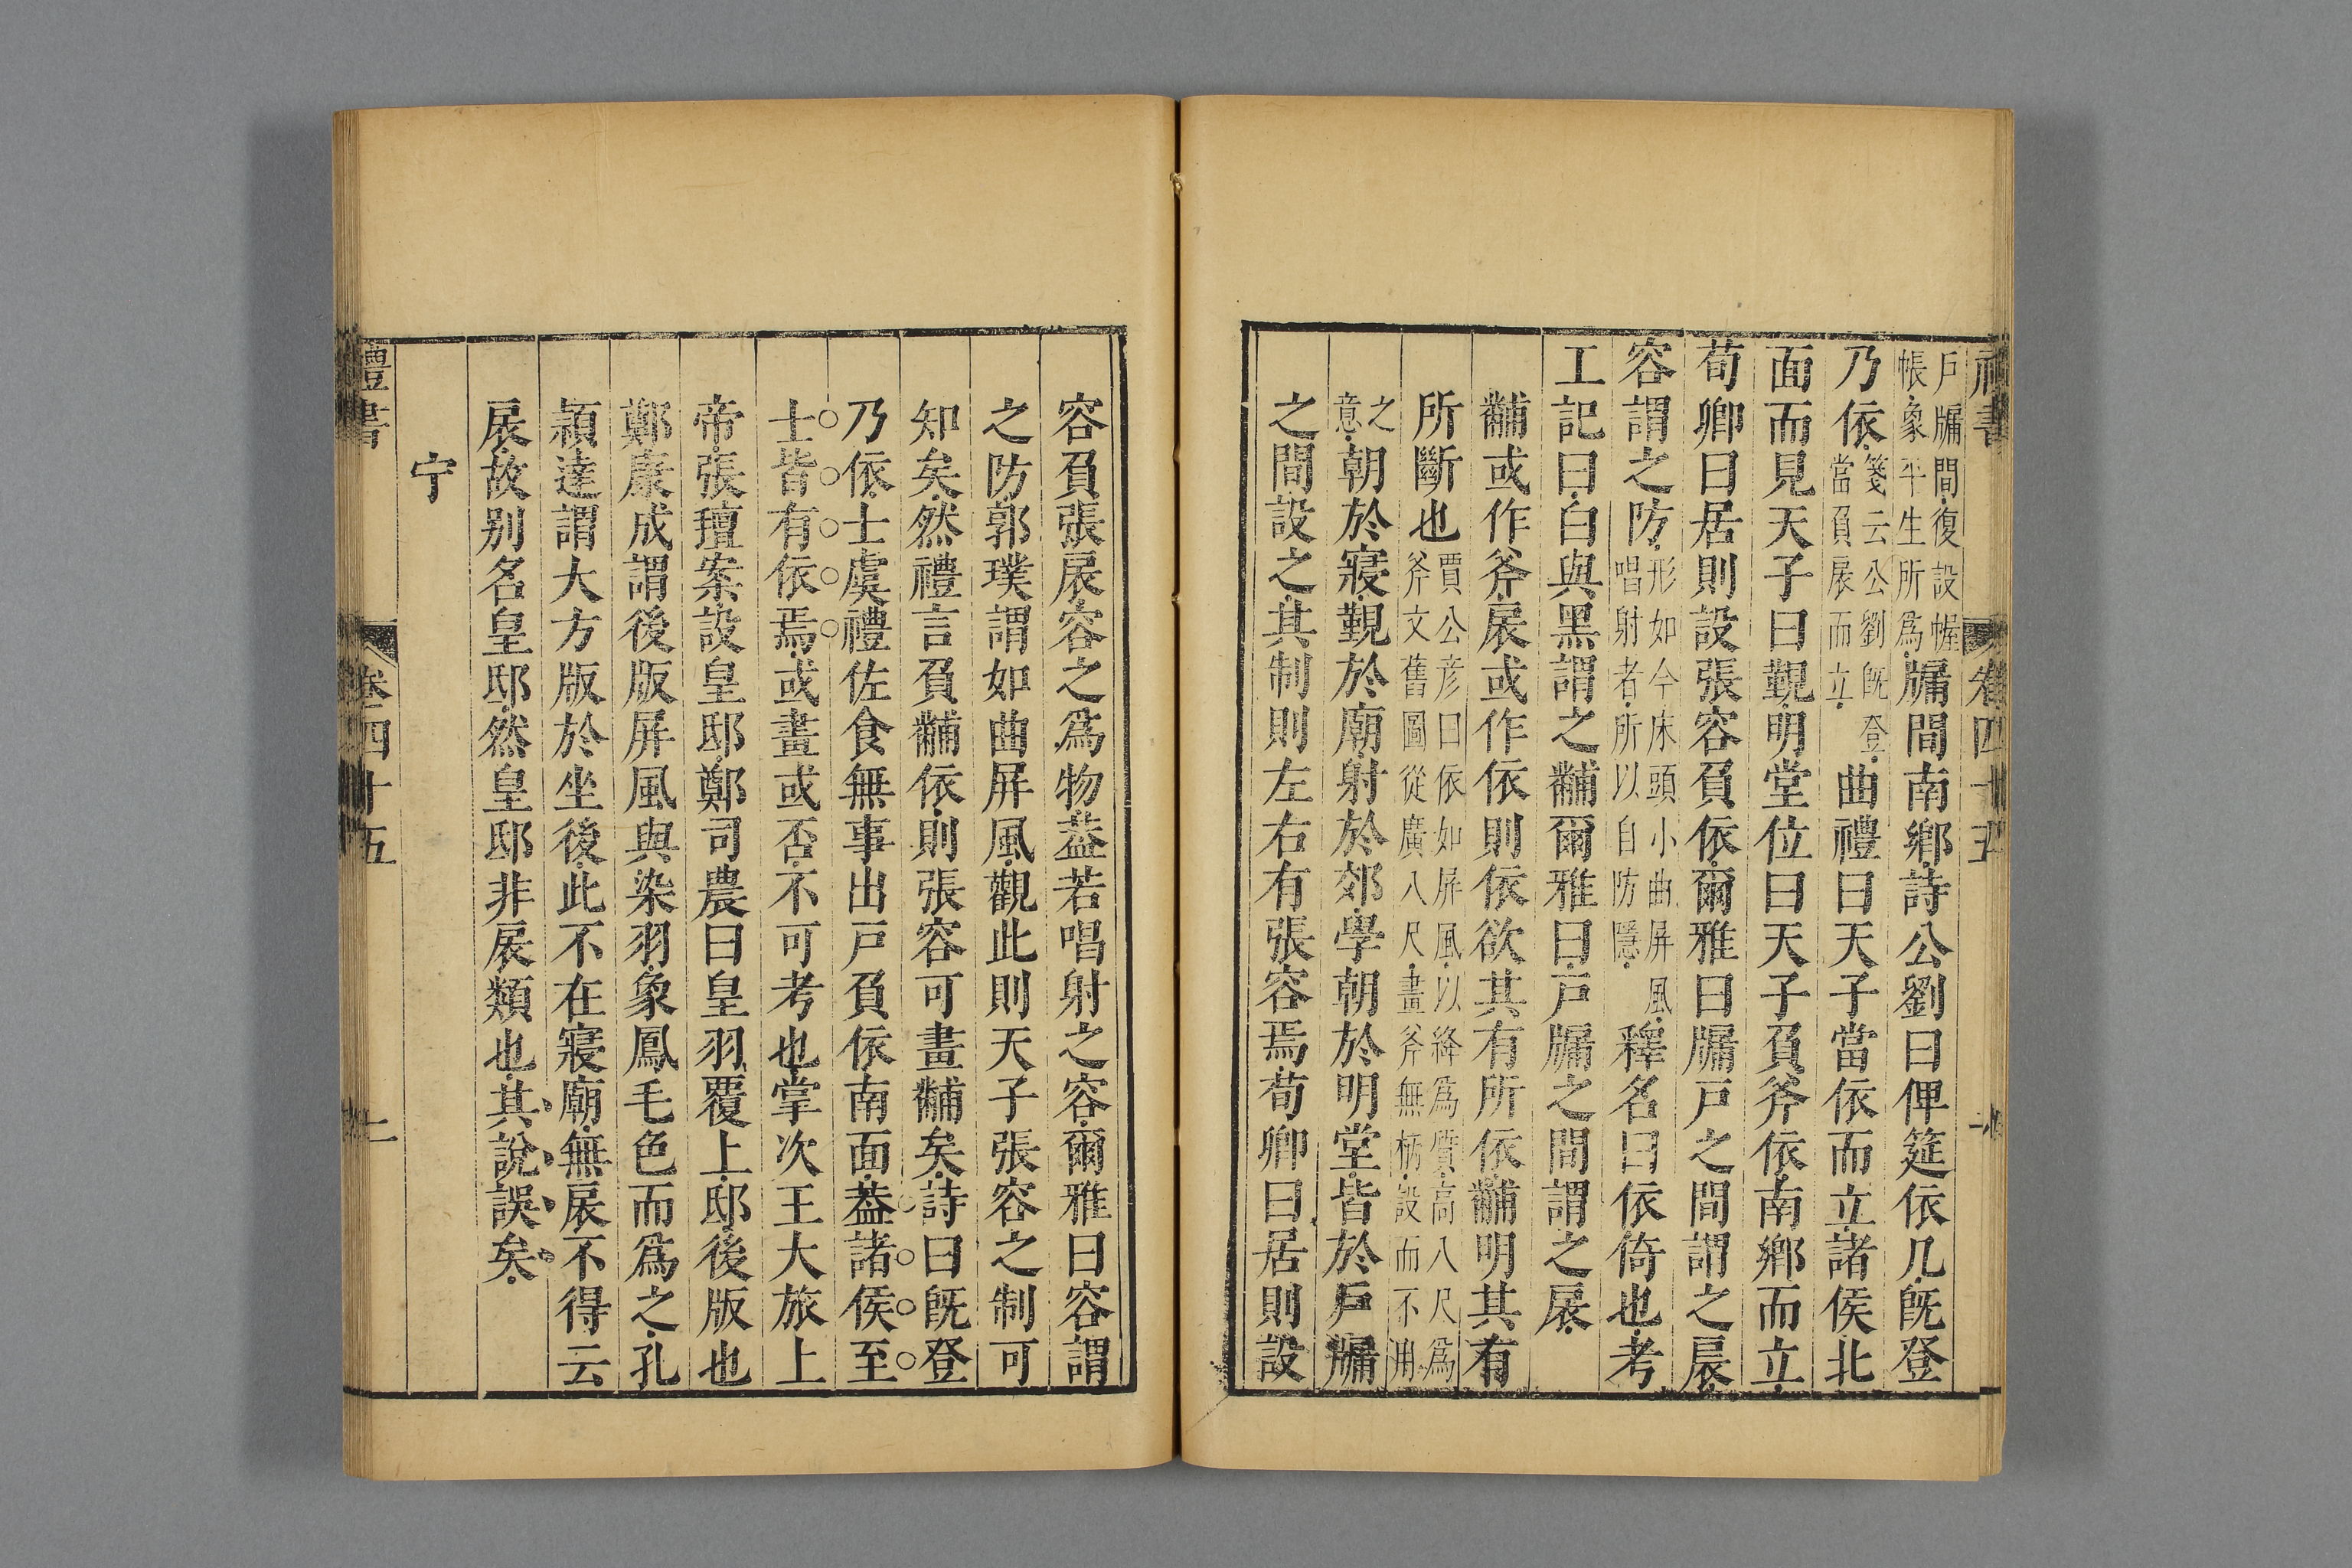 禮書 卷四十五
戶牖間復設幄帳象平生所爲牖間南鄕詩公劉曰俾筵依几旣登
乃依箋云公劉旣登當負扆而立曲禮曰天子當依而立諸侯北
面而見天子曰覲明堂位曰天子負斧依南鄕而立
荀卿曰居則設張容負依爾雅曰牖戶之間謂之扆
容謂之防形如今床頭小曲屏風唱射者所以自防隱釋名曰依倚也考
工記曰白與黑謂之黼爾雅曰戶牖之間謂之扆
黼或作斧扆或作依則依欲其有所依黼明其有
所斷也賈公彦曰依如屏風以絳爲質高八尺爲斧文舊圖從廣八尺畫斧無柄設而不用
之意朝於寢覲於廟射於郊學朝於明堂皆於戶牖
之間設之其制則左右有張容焉荀卿曰居則設
容負張扆容之爲物葢若唱射之容爾雅曰容謂
之防郭璞謂如曲屏風觀此則天子張容之制可
知矣然禮言負黼依則張容可畫黼矣詩曰旣登
乃依士虞禮佐食無事出戸負依南面葢諸侯至
士皆有依焉或畫或否不可考也掌次王大旅上
帝張氊案設皇邸鄭司農曰皇羽覆上邸後版也
鄭康成謂後版屏風與染羽象鳳毛色而爲之孔
頴達謂大方版於坐後此不在寢廟無扆不得云
扆故别名皇邸然皇邸非扆類也其說誤矣
宁
禮書 卷四十五 二